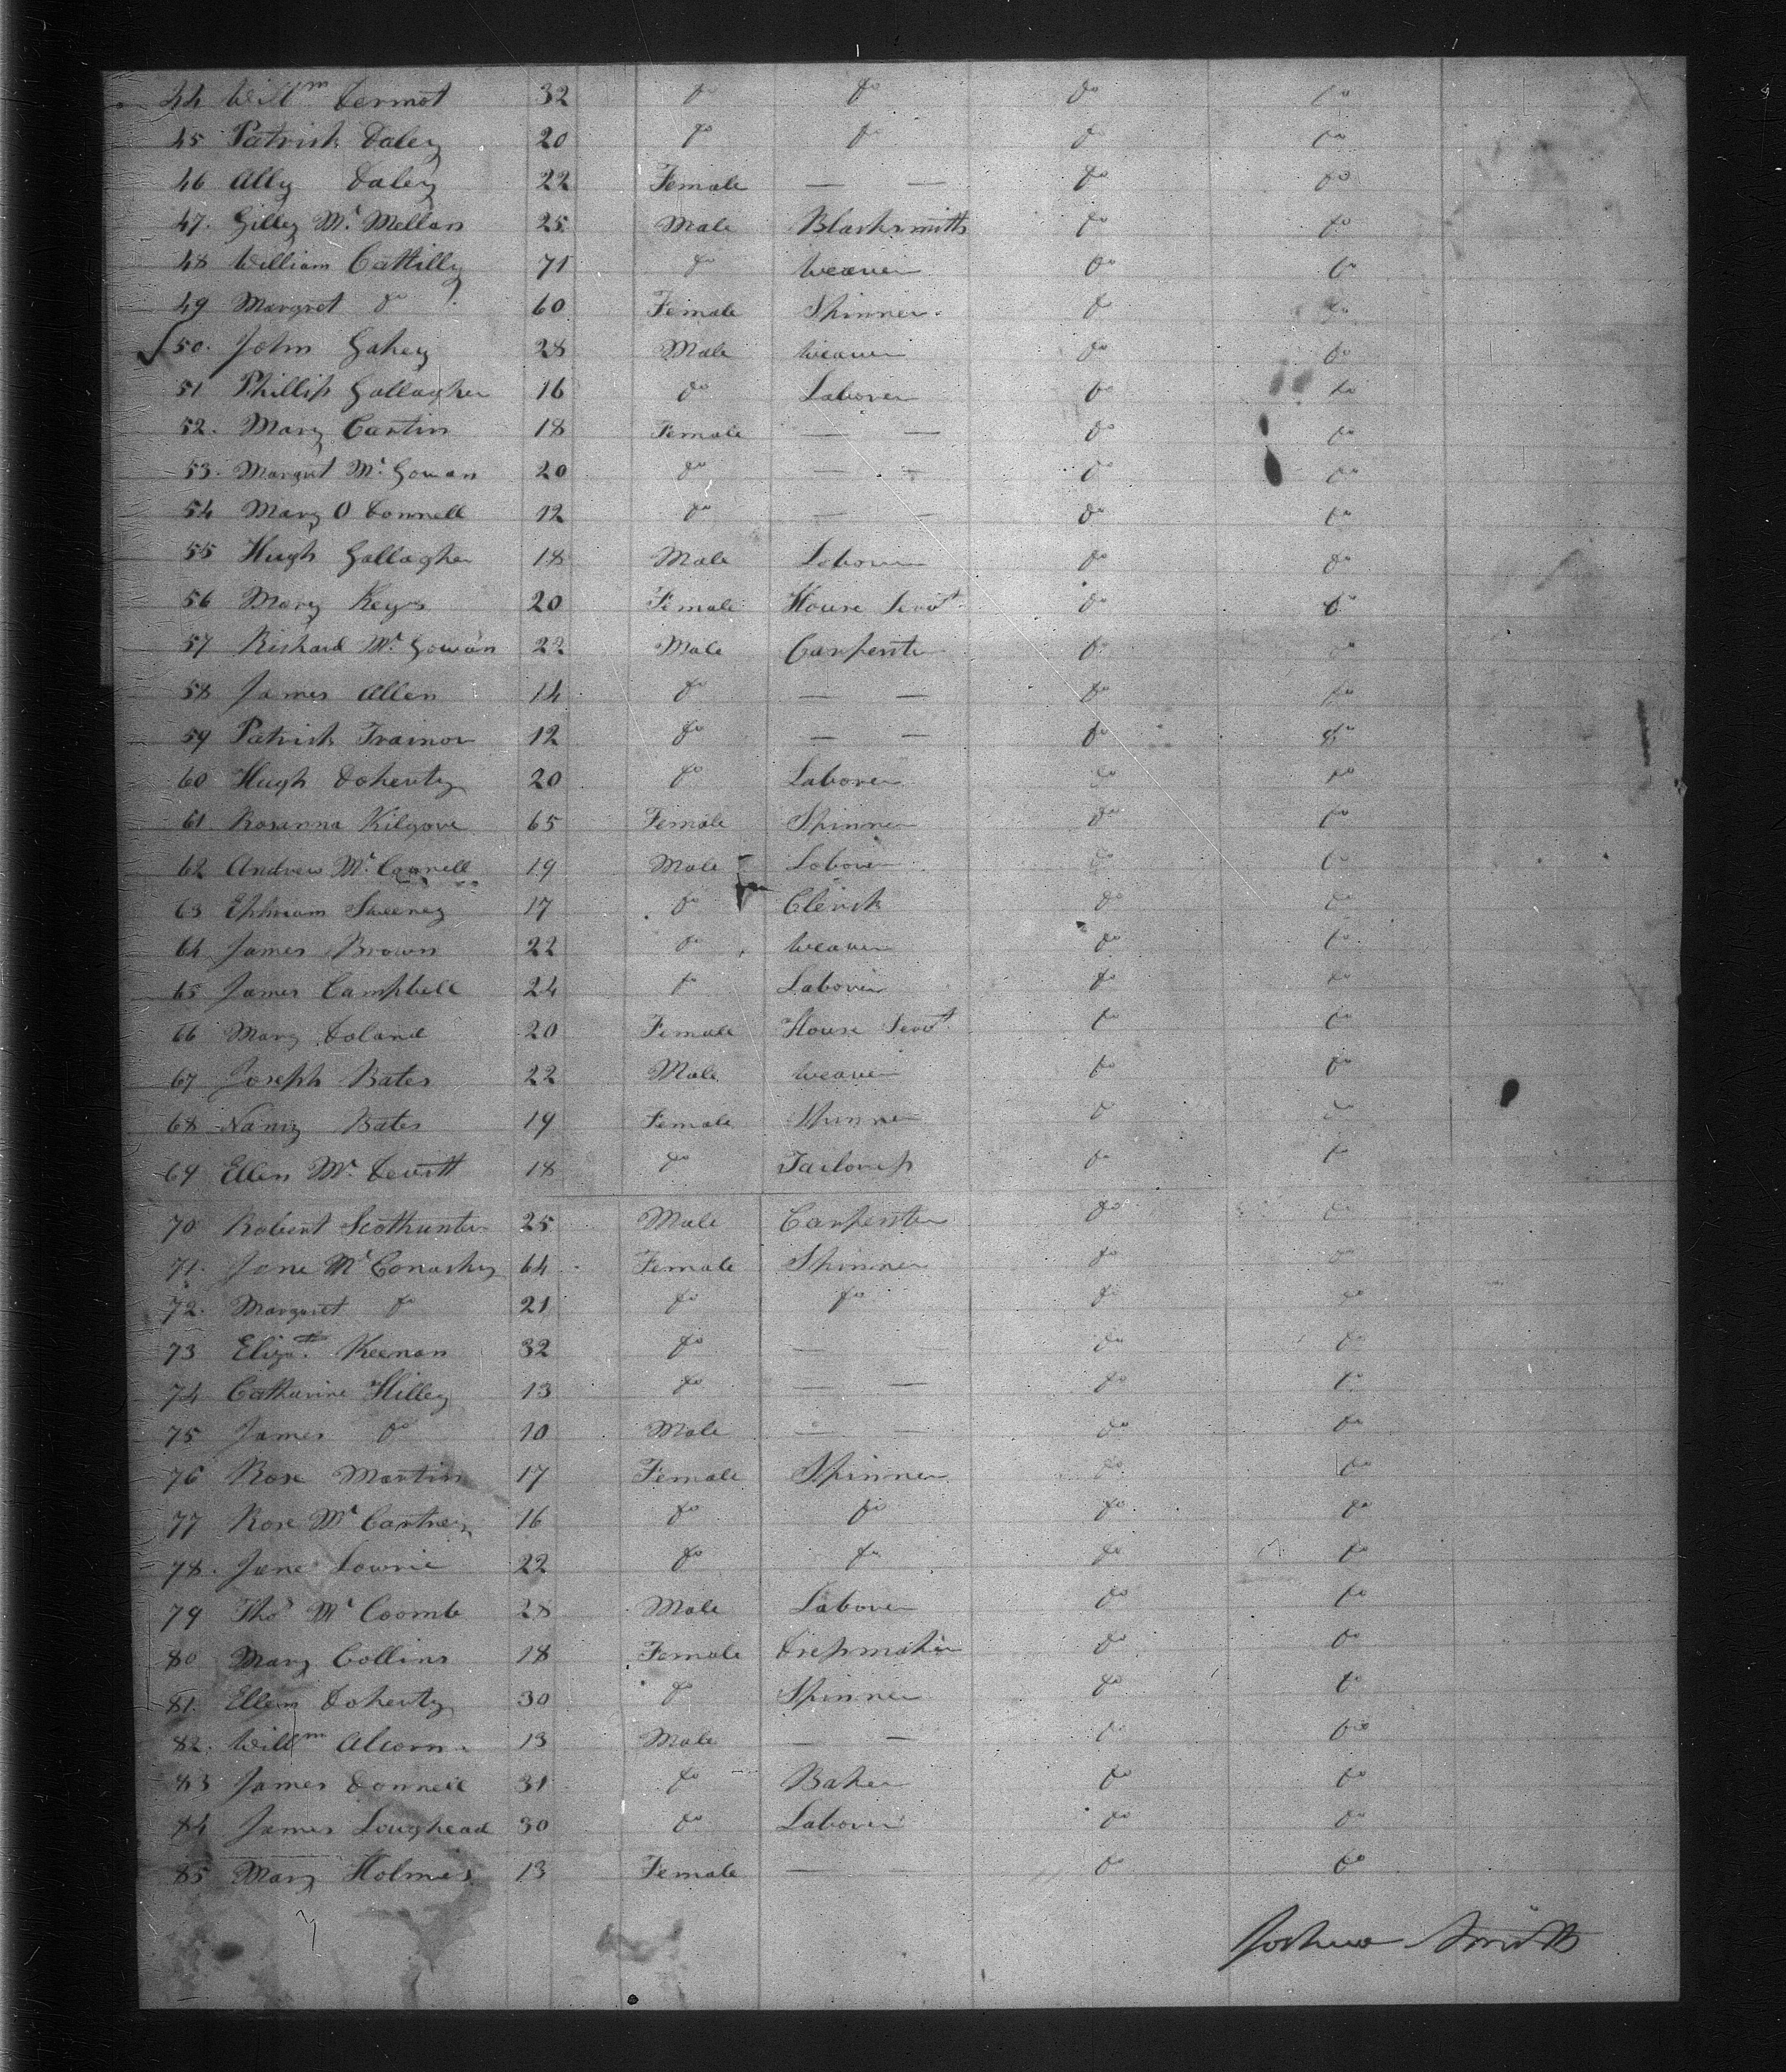 44 Will^m Dermot 32 do do do do
45 Patrick Daley 20 do do do do
46 Ally Daley 22 Female — — do do
47. Gilley Mc Mellan 25 Male Blacksmith do do
48 William Cattilly 71 do Weaver do do
49 Margret do 60 Female Spinner. do do
50. John Gahey 28 Male Weaver do do
51 Phillip Gallagher 16 do Laborer do do
52. Mary Cartin 18 Female — — do do
53. Margret Mc Gowan 20 do — — do do
54 Mary O Donnell 12 do — — do do
55 Hugh Gallagher 18 Male Laborer do do
56 Mary Keys 20 Female House Servt do do
57 Richard Mc Gowan 22 Male Carpenter do do
58 James Allen 14 do — — do do
59 Patrick Trainor 12 do — — do do
60 Hugh Doherty 20 do Laborer do do
61 Rosanna Kilgore 65 Female Spinner do do
62 Andrew Mc Connell 19 Male Laborer do do
63 Ephriam Sweeney 17 do Clerk do do
64 James Brown 22 do Weaver do do
65 James Campbell 24 do Laborer do do
66 Mary Doland 20 Female House Servt do do
67 Joseph Bates 22 Male Weaver do do
68 Nancy Bates 19 Female Spinner do do
69 Ellen Mc Devitt 18 do Tailoress do do
70 Robert Scothunter 25 Male Carpenter do do
71. Jane Mc Conachy 64 Female Spinner do do
72. Margaret do 21 do do do do
73 Elizth Keenan 32 do — — do do
74 Catharine Hilley 13 do — — do do
75 James do 10 Male — — do do
76 Rose Martin 17 Female Spinner do do
77 Rose Mc Cartney 16 do do do do
78. Jane Lowrie 22 do do do do
79 Thos Mc Coomb 28 Male Laborer do do
80 Mary Collins 18 Female Dressmaker do do
81. Ellen Doherty 30 do Spinner do do
82. Will^m Alcorn 13 Male — — do do
83 James Donnell 31 do Baker do do
84 James Loughead 30 do Laborer do do
85 Mary Holmes 13 Female — — do do
Joshua Smith